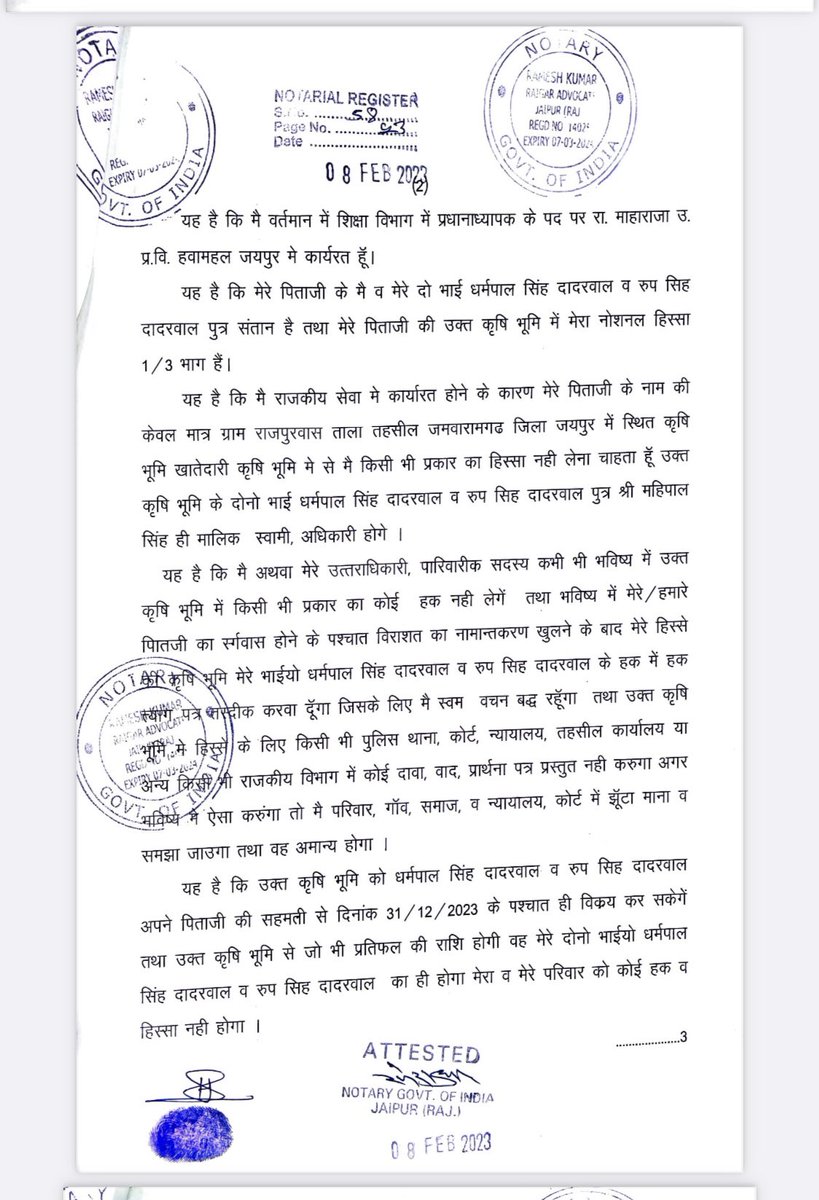 NOTARY
RAMESH KUMAR
RAIGAR ADVOCATE
JAIPUR (RAJ
REGD NO 14024
EXPIRY 07-03-2024
GOVT. OF INDIA
NOTARIAL REGISTER
S.No. 58
Page No. 
Date
08 FEB 2023
(2)
यह है कि मै वर्तमान में शिक्षा विभाग में प्रधानाध्यापक के पद पर रा. माहाराजा उ.
प्र.वि. हवामहल जयपुर मे कार्यरत हूॅं।
यह है कि मेरे पिताजी के मै व मेरे दो भाई धर्मपाल सिंह दादरवाल व रुप सिह
दादरवाल पुत्र संतान है तथा मेरे पिताजी की उक्त कृषि भूमि में मेरा नोशनल हिस्सा
1/3 भाग हैं।
यह है कि मै राजकीय सेवा मे कार्यारत होने के कारण मेरे पिताजी के नाम की
केवल मात्र ग्राम राजपुरवास ताला तहसील जमवारामगढ जिला जयपुर में स्थित कृषि
भूमि खातेदारी कृषि भूमि मे से मै किसी भी प्रकार का हिस्सा नही लेना चाहता हॅू उक्त
कृषि भूमि के दोनो भाई धर्मपाल सिंह दादरवाल व रुप सिह दादरवाल पुत्र श्री महिपाल
सिंह ही मालिक स्वामी, अधिकारी होगे ।
यह है कि मै अथवा मेरे उत्तराधिकारी, पारिवारीक सदस्य कभी भी भविष्य में उक्त
कृषि भूमि में किसी भी प्रकार का कोई हक नही लेगें तथा भविष्य में मेरे/हमारे
पिातजी का र्स्गवास होने के पश्चात विराशत का नामान्तकरण खुलने के बाद मेरे हिस्से
की कृषि भूमि मेरे भाईयो धर्मपाल सिंह दादरवाल व रुप सिह दादरवाल के हक में हक
त्याग पत्र तस्दीक करवा दूॅंगा जिसके लिए मै स्वम वचन बद्ध रहूॅंगा तथा उक्त कृषि
भूमि मे हिस्से के लिए किसी भी पुलिस थाना, कोर्ट, न्यायालय, तहसील कार्यालय या
अन्य किसी भी राजकीय विभाग में कोई दावा, वाद, प्रार्थना पत्र प्रस्तुत नही करुगा अगर
भविष्य मै ऐसा करुंगा तो मै परिवार, गॉव, समाज, व न्यायालय, कोर्ट में झूॅंटा माना व
समझा जाउगा तथा वह अमान्य होगा ।
यह है कि उक्त कृषि भूमि को धर्मपाल सिंह दादरवाल व रुप सिह दादरवाल
अपने पिताजी की सहमती से दिनांक 31/12/2023 के पश्चात ही विक्रय कर सकेगें
तथा उक्त कृषि भूमि से जो भी प्रतिफल की राशि होगी वह मेरे दोनो भाईयो धर्मपाल
सिंह दादरवाल व रुप सिह दादरवाल का ही होगा मेरा व मेरे परिवार को कोई हक व
हिस्सा नही होगा ।
....................3
ATTESTED
NOTARY GOVT. OF INDIA
JAIPUR (RAJ.)
08 FEB 2023